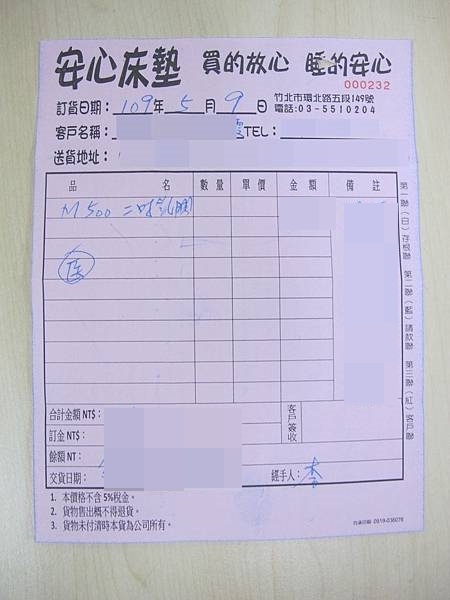 安心床墊 買的放心 睡的安心
000232
訂貨日期：109年 5 月 9 日
竹北市環北路五段149號
電話:03-5510204
客戶名稱： 霞 TEL：
送貨地址：
品 名 數量 單價 金額 備註
M500 二吋乳膠
第一聯(白)存根聯 第二聯(藍)請款聯 第三聯(紅)客戶聯
合計金額 NT$：
訂金 NT$：
餘額 NT：
交貨日期：
客戶簽收
經手人：李
1. 本價格不含 5%稅金。
2. 貨物售出概不得退貨。
3. 貨物未付清時本貨為公司所有。
0919-036076